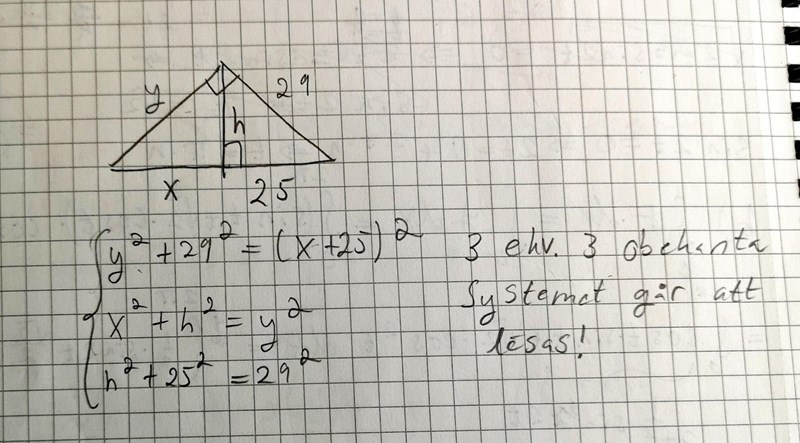 y
29
h
x
25
y² + 29² = (x+25)²
x² + h² = y²
h² + 25² = 29²
3 ekv. 3 obekanta
Systemet går att
lösas!